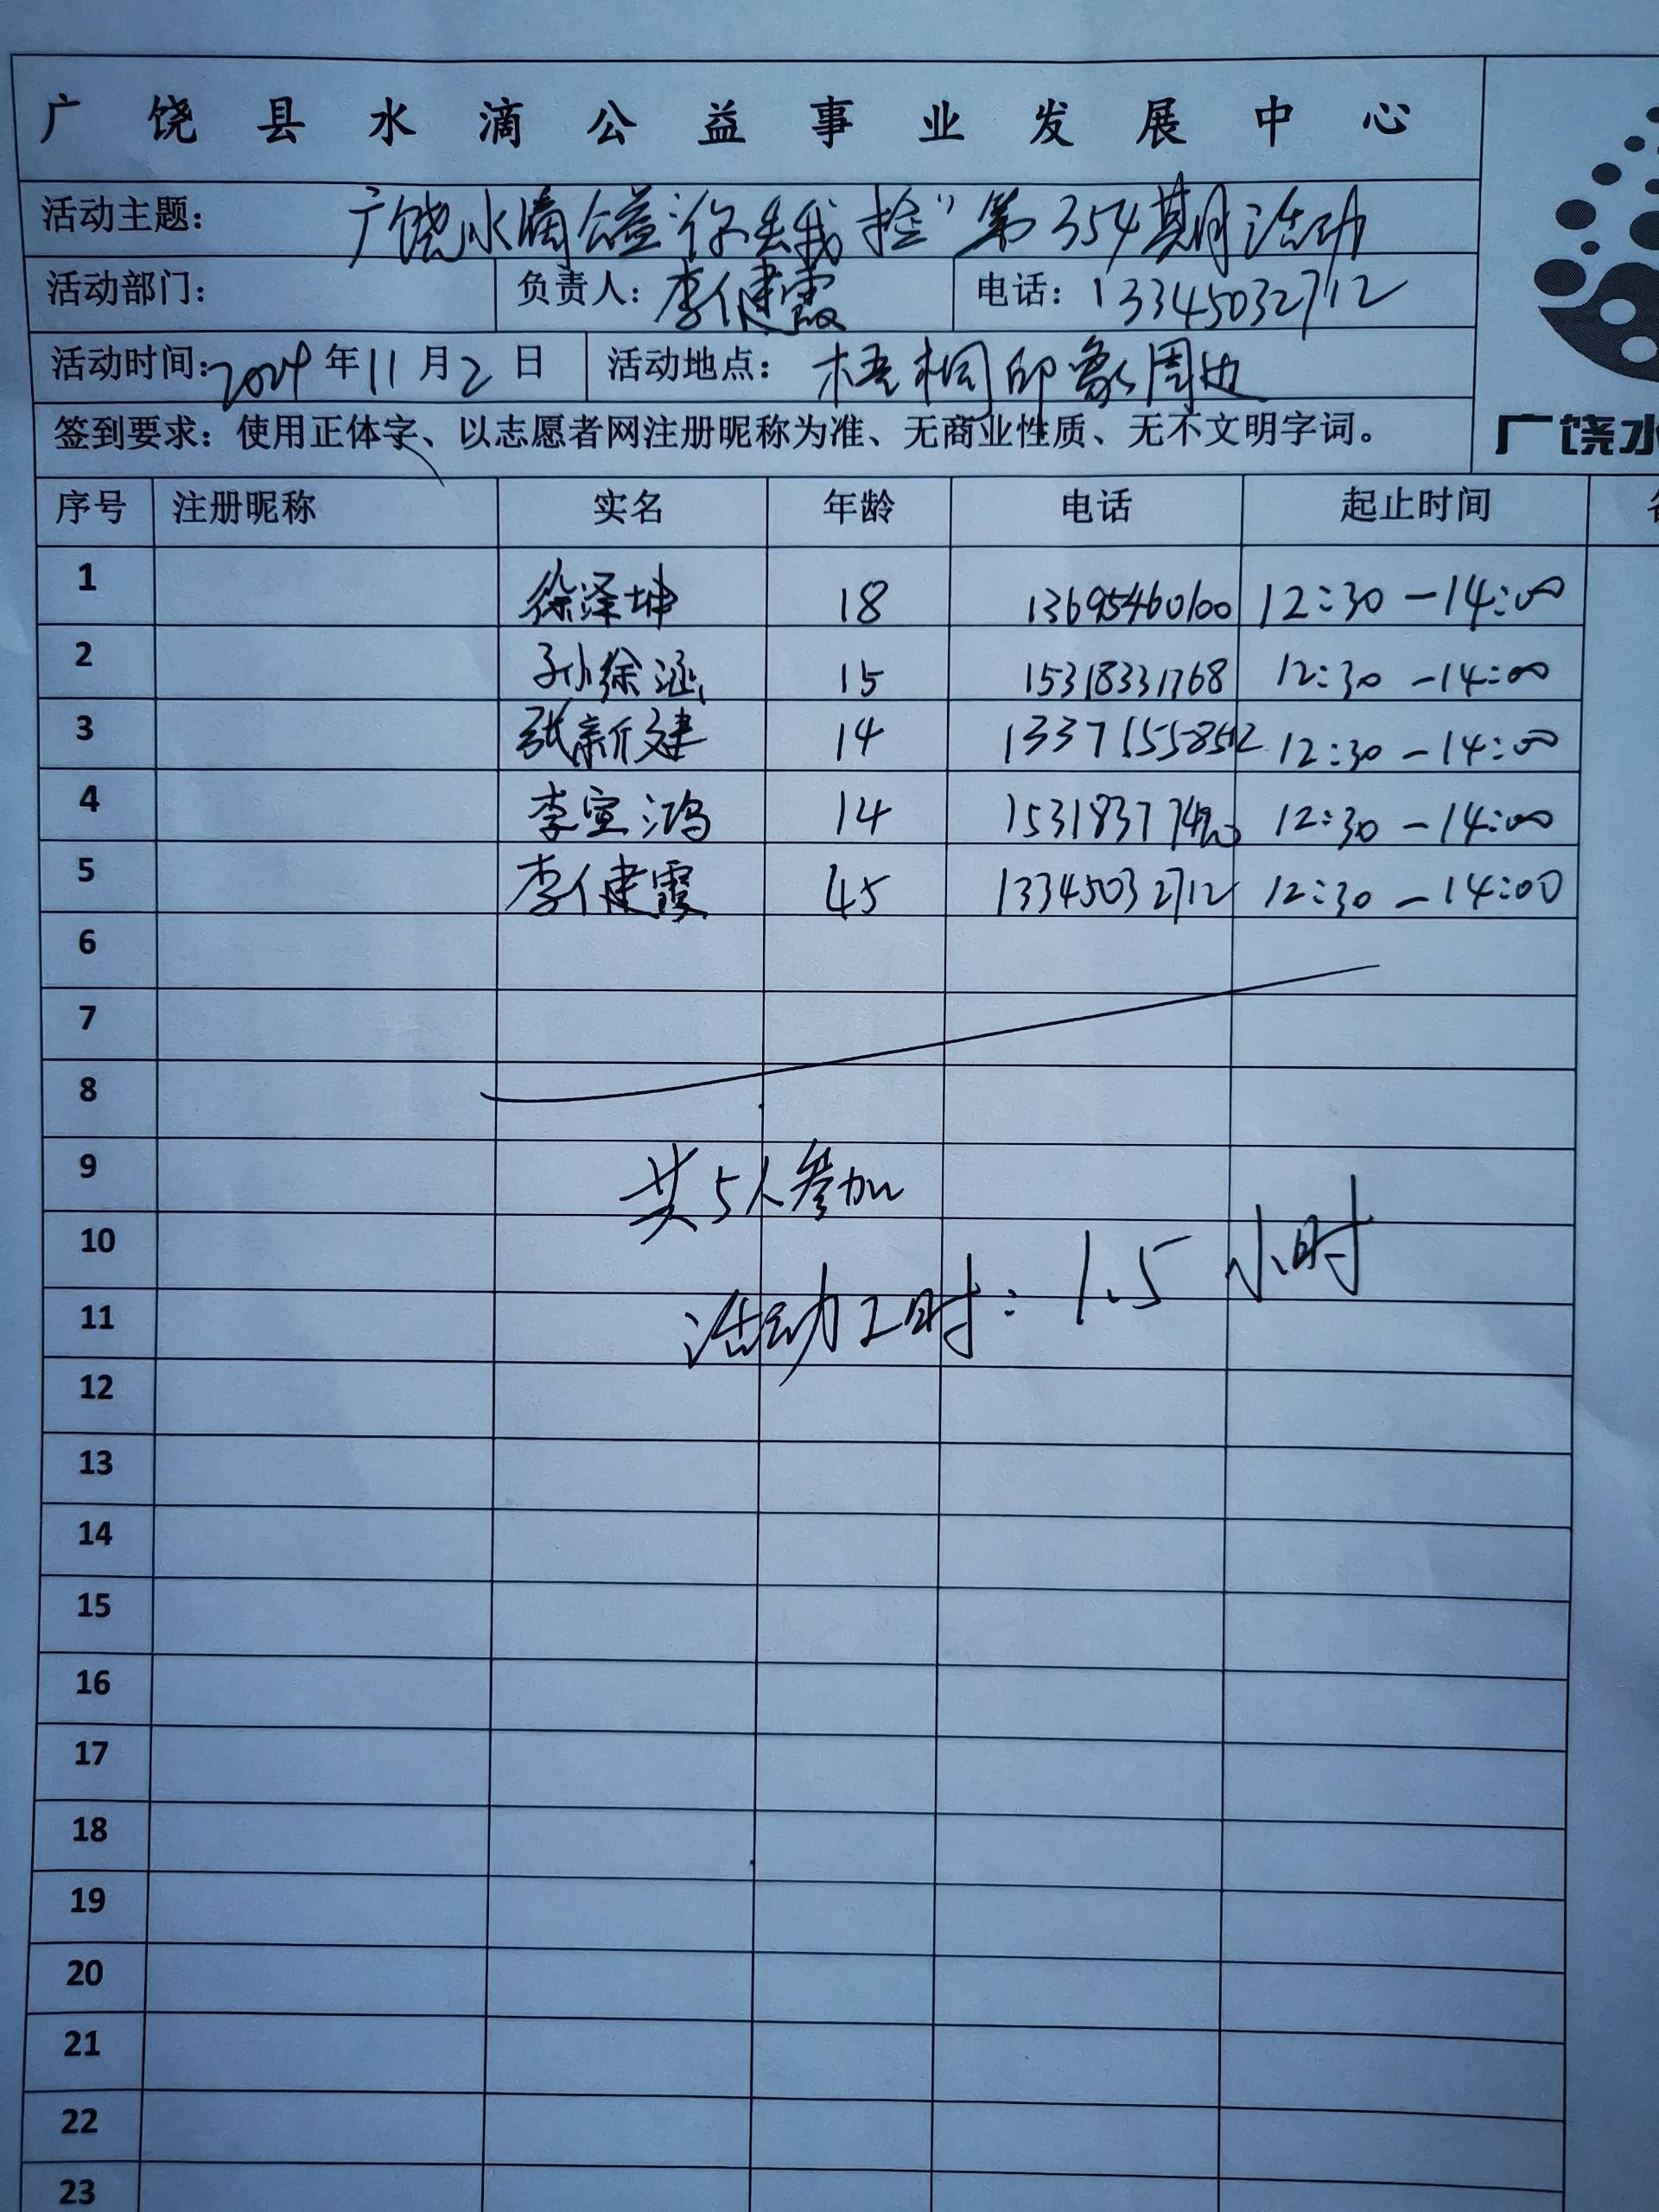 广饶县水滴公益事业发展中心
活动主题: 广饶水滴公益"你丢我捡"第354期活动
活动部门: 负责人: 李健霞 电话: 13345032712
活动时间: 2024年11月2日 活动地点: 梧桐印象周边
签到要求: 使用正体字、以志愿者网注册昵称为准、无商业性质、无不文明字词。
广饶水
序号 注册昵称 实名 年龄 电话 起止时间
1 徐泽坤 18 13695460100 12:30-14:00
2 孙徐涵 15 15318331768 12:30-14:00
3 张新建 14 12:30-14:00
4 李宣鸿 14 12:30-14:00
5 李健霞 45 13345032712 12:30-14:00
6
7
8
9 共5人参加
10
11 活动工时: 1.5小时
12
13
14
15
16
17
18
19
20
21
22
23